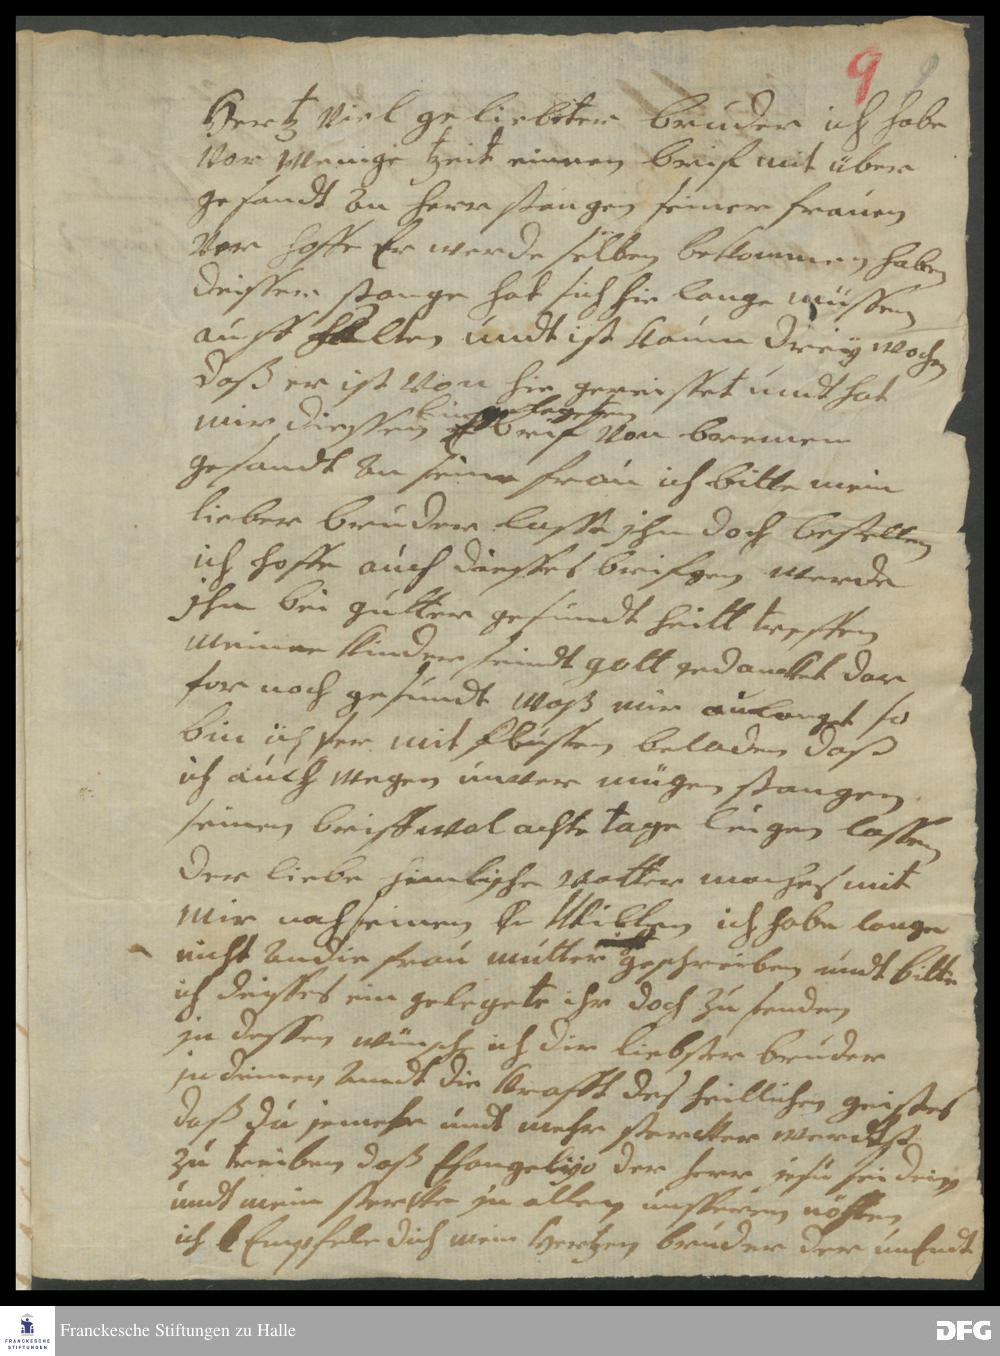 9 9
Hertz Viel geliebtter bruder ich habe
Vor Wenige tzeit einnen brif mit über
gesandt an herr stangen seiner frauen
Vor hoffe Er werde selben bekommen haben
deisser stange hat sich hie lange müssen
auff halten undt ist kaum dreiy wochen
daß er ist Von hie gereisset undt hat
mir diessen brif Von bremen
gesandt an seine frau ich bitte mein
lieber bruder lasse ihn doch bestellen
ich hoffe auch diesses brifgen werde
ihn bei gutter gesundt heitt treffen
meinne kinder seindt gott gedancket dar
for noch gesundt Waß mir anlanget so
bin ich ser mit beladen daß
ich auch wegen unver mügen stangen
seinen briff wol achte tage ligen lassen
der liebe himlische Vatter maches mit
mir nach seinen Willen ich habe lange
nicht an die frau mutter geschreiben undt bitte
ich deisses ein gelegete ihr doch zu senden
in dessen wünsche ich dir liebster bruder
in deinen amdt die krafft des heillichen geistes
daß du jemehr undt mehr stercker werdest
zu treiben daß Efangeliyo der herr jesu sei dein
undt mein stercke in allen unsseren nöhten
ich Empfele dich mein Hertzen bruder der
Franckesche Stiftungen zu Halle
DFG
FRANCKESCHE
STIFTUNGEN